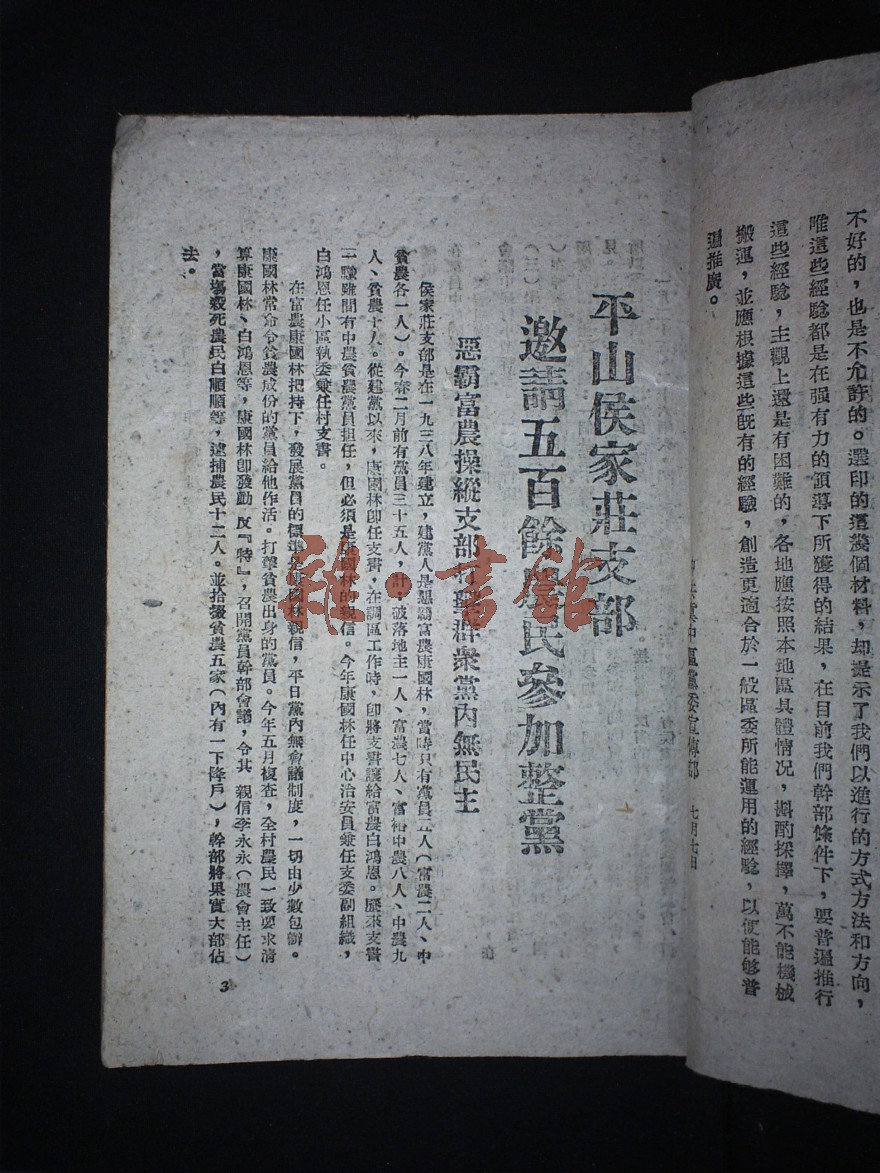 不好的，也是不允許的。選印的這幾個材料，却提示了我們以進行的方式方法和方向，
唯這些經驗都是在强有力的領導下所獲得的結果，在目前我們幹部條件下，要普遍推行
這些經驗，主觀上還是有困難的，各地應按照本地區具體情况，斟酌採擇，萬不能機械
搬運，並應根據這些既有的經驗，創造更適合於一般區委所能運用的經驗，以便能够普
遍推廣。
黨委宣傳部 七月七日
平山侯家莊支部
邀請五百餘農民參加整黨
惡霸富農操縱支部打擊群衆黨內無民主
侯家莊支部是在一九三八年建立，建黨人是惡霸富農康國林，當時只有黨員五人（富農二人、中
貧農各一人）。今春二月前有黨員三十五人，計：破落地主一人、富農七人、富裕中農八人、中農九
人、貧農十人。從建黨以來，康國林卽任支書，在調區工作時，卽將支書讓給富農白鴻恩。歷來支書
一職雖間有中農貧農黨員担任，但必須是康國林的親信。今年康國林任中心治安員兼任支委副組織，
白鴻恩任小區執委兼任村支書。
在富農康國林把持下，發展黨員的標準是康國林親信，平日黨內無會議制度，一切由少數包辦。
康國林常命令貧農成份的黨員給他作活。打擊貧農出身的黨員。今年五月複查，全村農民一致要求清
算康國林、白鴻恩等，康國林卽發動 反『特』，召開黨員幹部會議，令其 親信李永永（農會主任）
，當場殺死農民白順順等，逮捕農民十二人。並拾掇貧農五家（內有一下降戶），幹部將果實大部佔
去。
3
雜·書館